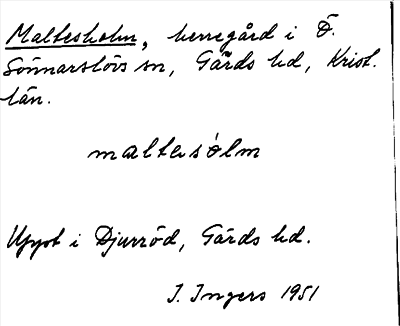 Maltesholm, herregård i Ö.
Sönnarslövs sn, Gärds hd, Krist.
län.
maltesólm
Uppt i Djurröd, Gärds hd.
I. Ingers 1951